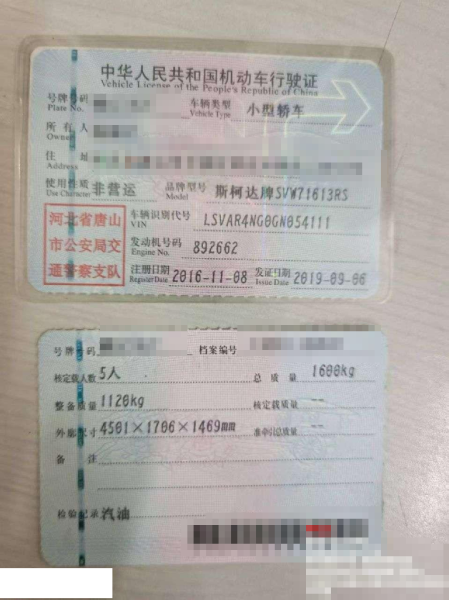 中华人民共和国机动车行驶证
Vehicle License of the People's Republic of China
号牌号码 车辆类型 小型轿车
Plate No. Vehicle Type
所有人
Owner
住 址
Address
使用性质 非营运 品牌型号 斯柯达牌SVW71613RS
Use Character Model
河北省唐山
市公安局交
通警察支队
车辆识别代号 LSVAR4NG0GN054111
VIN
发动机号码 892662
Engine No.
注册日期 2016-11-08 发证日期 2019-09-06
Register Date Issue Date
号牌号码 档案编号
核定载人数 5人 总 质 量 1600kg
整备质量 1120kg 核定载质量 --
外廓尺寸 4501×1706×1469mm 准牵引总质量 --
备 注
检验记录 汽油